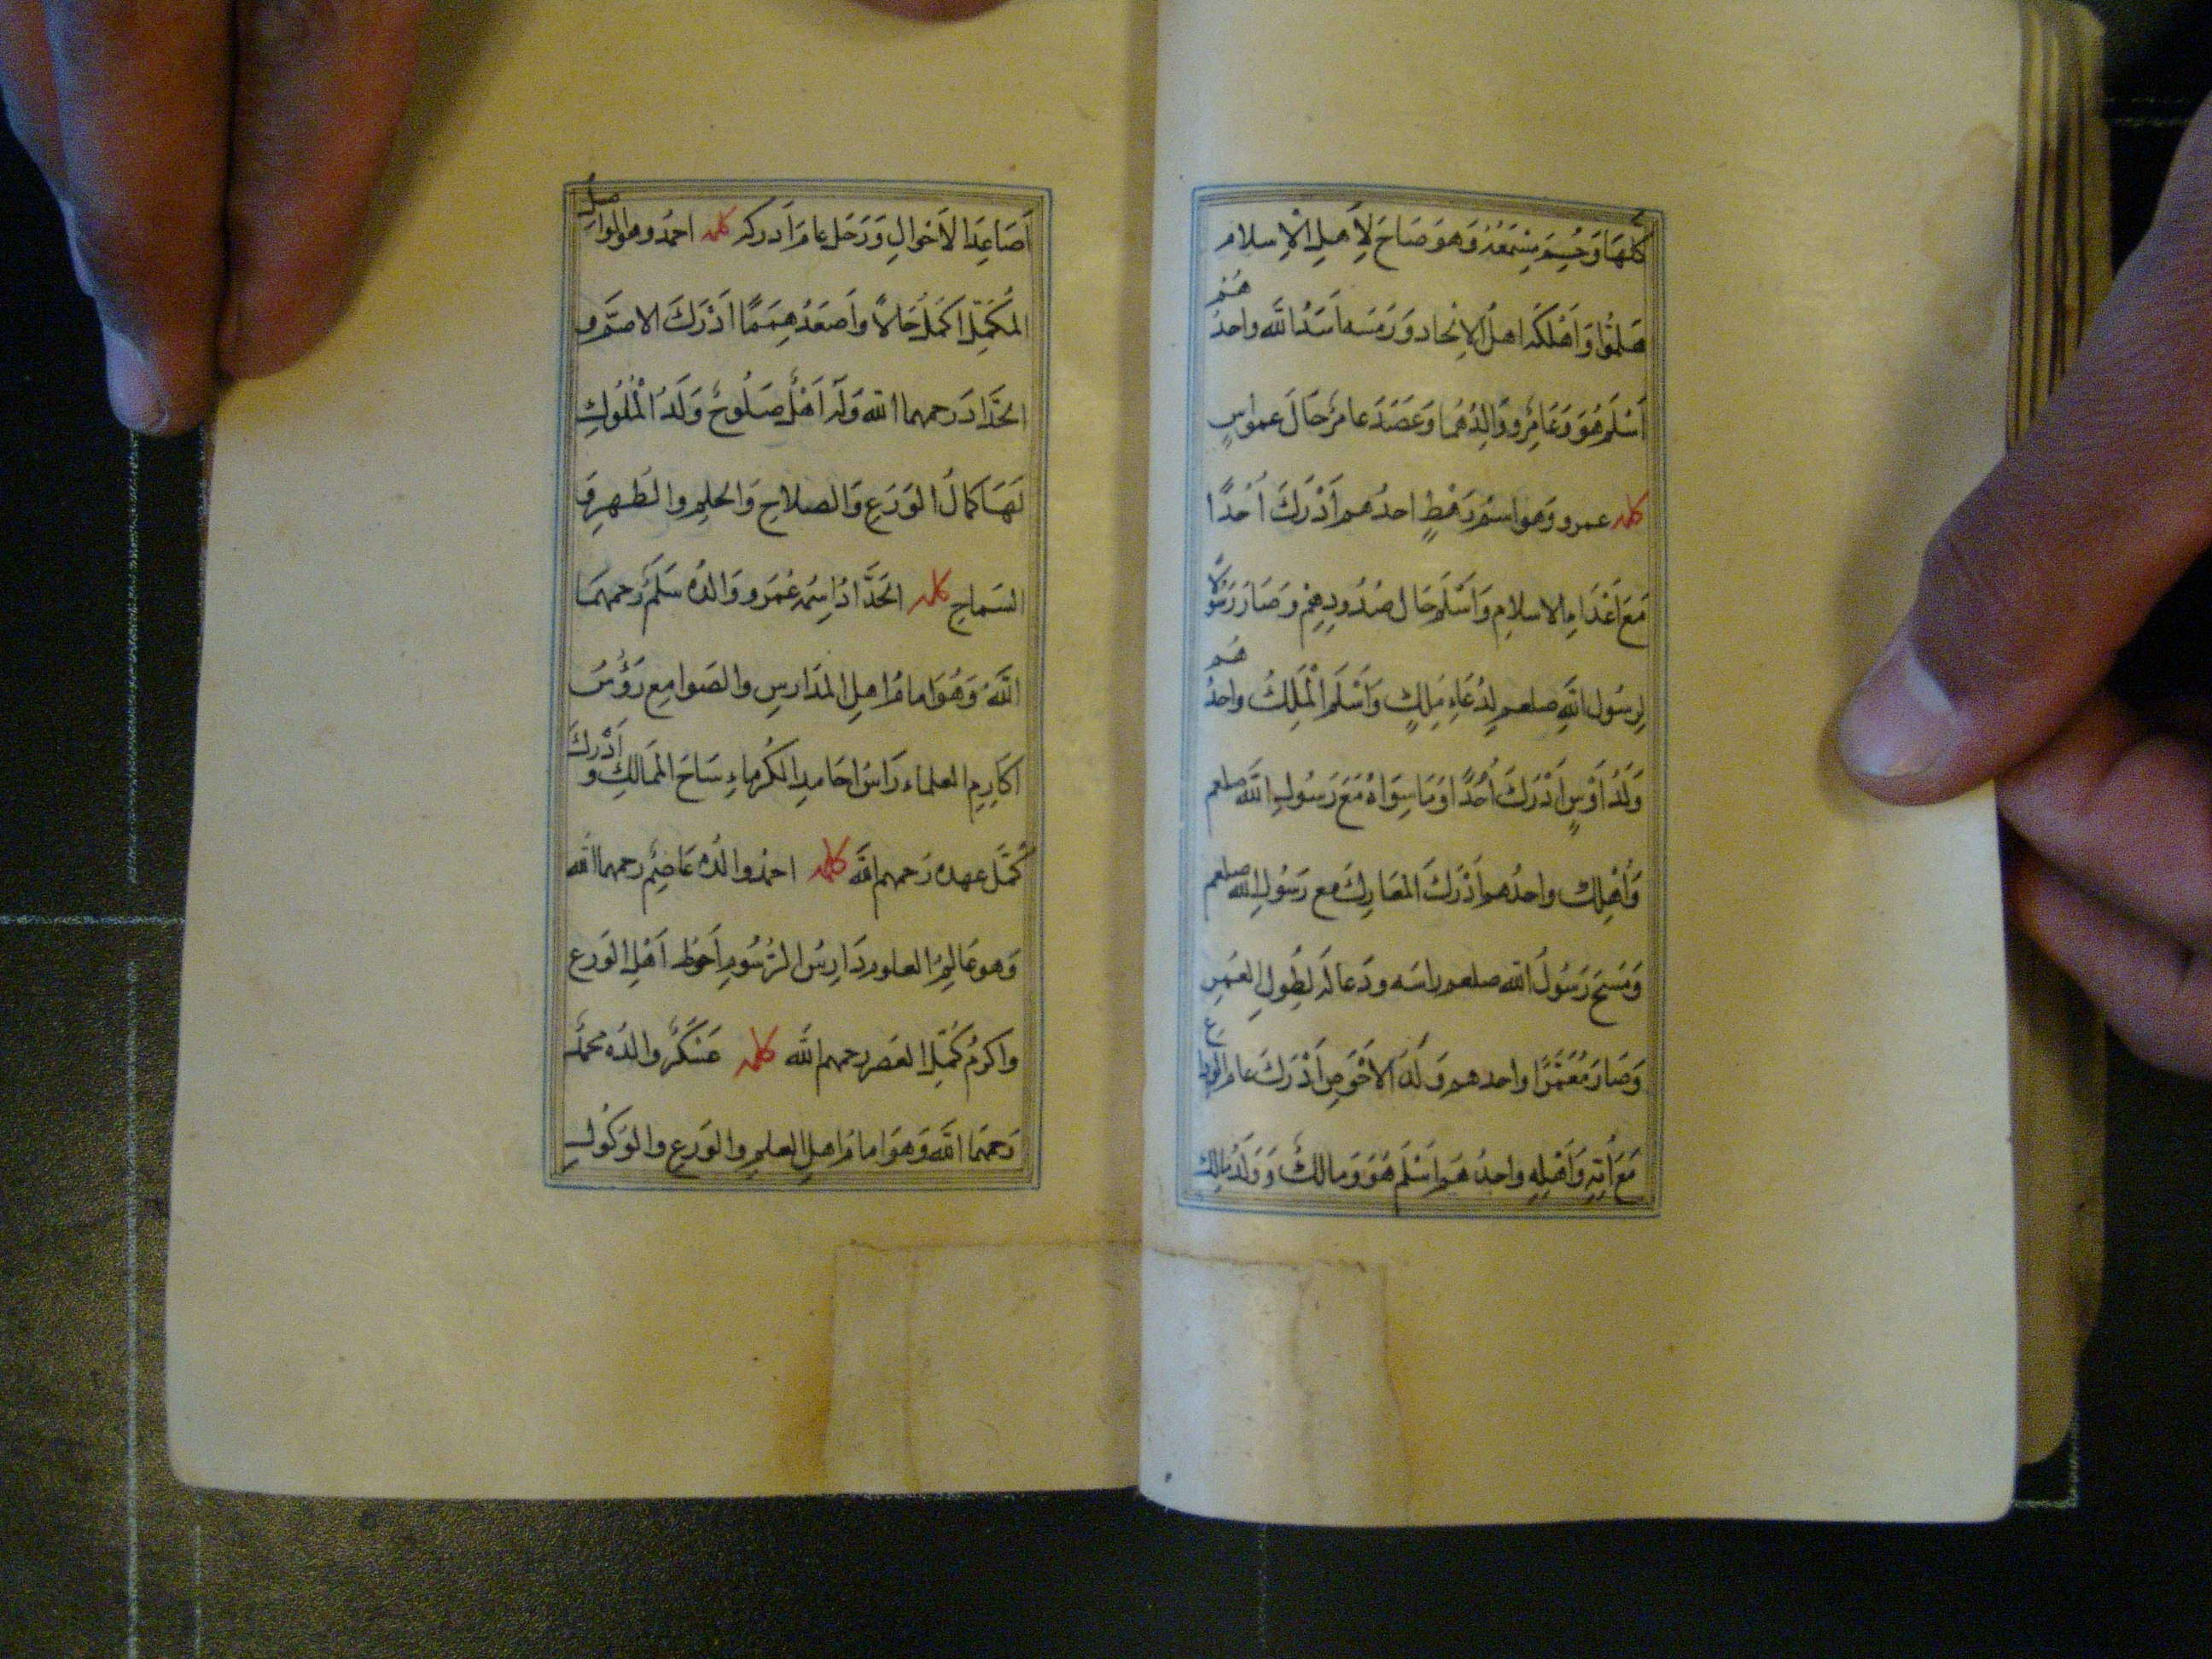 كلها وَحُسِمَ مِسْمَعُهُ وَهوَ صَاحَ لِأَهلِ الْاِسلام
هَلمُّوا وَاَهْلَكَهُ اهلُ الاِلحاد وَرَمَسَه اَسَدُ الله واحدُهُم
اَسْلَمَ هُوَ وَعَامِرٌ وَوَالِدُهُمَا وَعَصَدَ عامرٌ حَالَ عمواسٍ
كلمه عمرو وَهو اسْمُ رَهْطٍ احدُهم اَدْرَكَ اُحُدًا
مَعَ اَعْدَاءِ الاسلامِ وَاَسْلَمَ حَال صُدُودِهِمْ وَصَارَ رَسُولًا
لِرسُول اللّهِ صلعم لِدُعَاءِ مَلِكٍ وَاَسْلَمَ الْمَلِكُ واحدُهم
وَلَدُ اَوْسٍ اَدْرَكَ اُحُدًا وَمَا سِوَاهُ مَعَ رَسُولِ اللّه صلعم
وَاُهْلِك واحدُهم اَدْرَكَ المعَارِكَ مع رَسُولِ الله صلعم
وَمَسَحَ رَسُولُ الله صلعم راسَه ودَعا لَه لِطُولِ العمرِ
وَصَارَ مُعَمَّرًا واحدهم وَلَدُ الاَحْوَصِ اَدْرَكَ عامَ الوداع
مَعَ اُمِّهِ وَاَهْلِهِ واحدُهم اَسْلَمَ هُوَ وَمالكٌ وَوَلَدُ مالك
اَصَاعِدَ الاَحْوالِ وَرَحَلَ عامَ اَدركه كلمه احمدُ وهو الواصل
المُكَمِّلُ اكمَلُ حَالاً وَاَصعَدُ هِمَمًا اَدْرَكَ الاصمَّ و
الحَدَّادَ رحمهما الله وَلَه اَهْلٌ صَلُوحٌ وَلَدُ الْمُلُوكِ
لَهَا كَمالُ الوَرَعِ وَالصلاحِ وَالحلمِ والطُهرِ وَ
السَماحِ كلمه الحَدَّادُ اسمُه عُمَرو وَوَالدُه سَلَمٌ رحمهمَا
اللّهُ وَهُوَ امامُ اهلِ المَدَارسِ والصَوامعِ رَؤُسُ
اكَارِمِ العلماء رَاسُ احَامدِ الكُرماءِ سَاحَ المَمالكَ وَ اَدْرك
كُمَّلَ عهده رَحمهم الله كلمه احمدُ والدُه عَاصِمٌ رحمهما الله
وَهو عَالِمُ العلوم دَارِسُ الرُسُومِ اَحوَط اَهْلِ الوَرع
واكرمُ كُمَّلِ العصر رحمهم الله كلمه عَسْكَرٌ والدُه محمدٌ
رَحمهمَا اللّه وَهوَ امامُ اهلِ العلمِ والوَرعِ والوَكُولِ